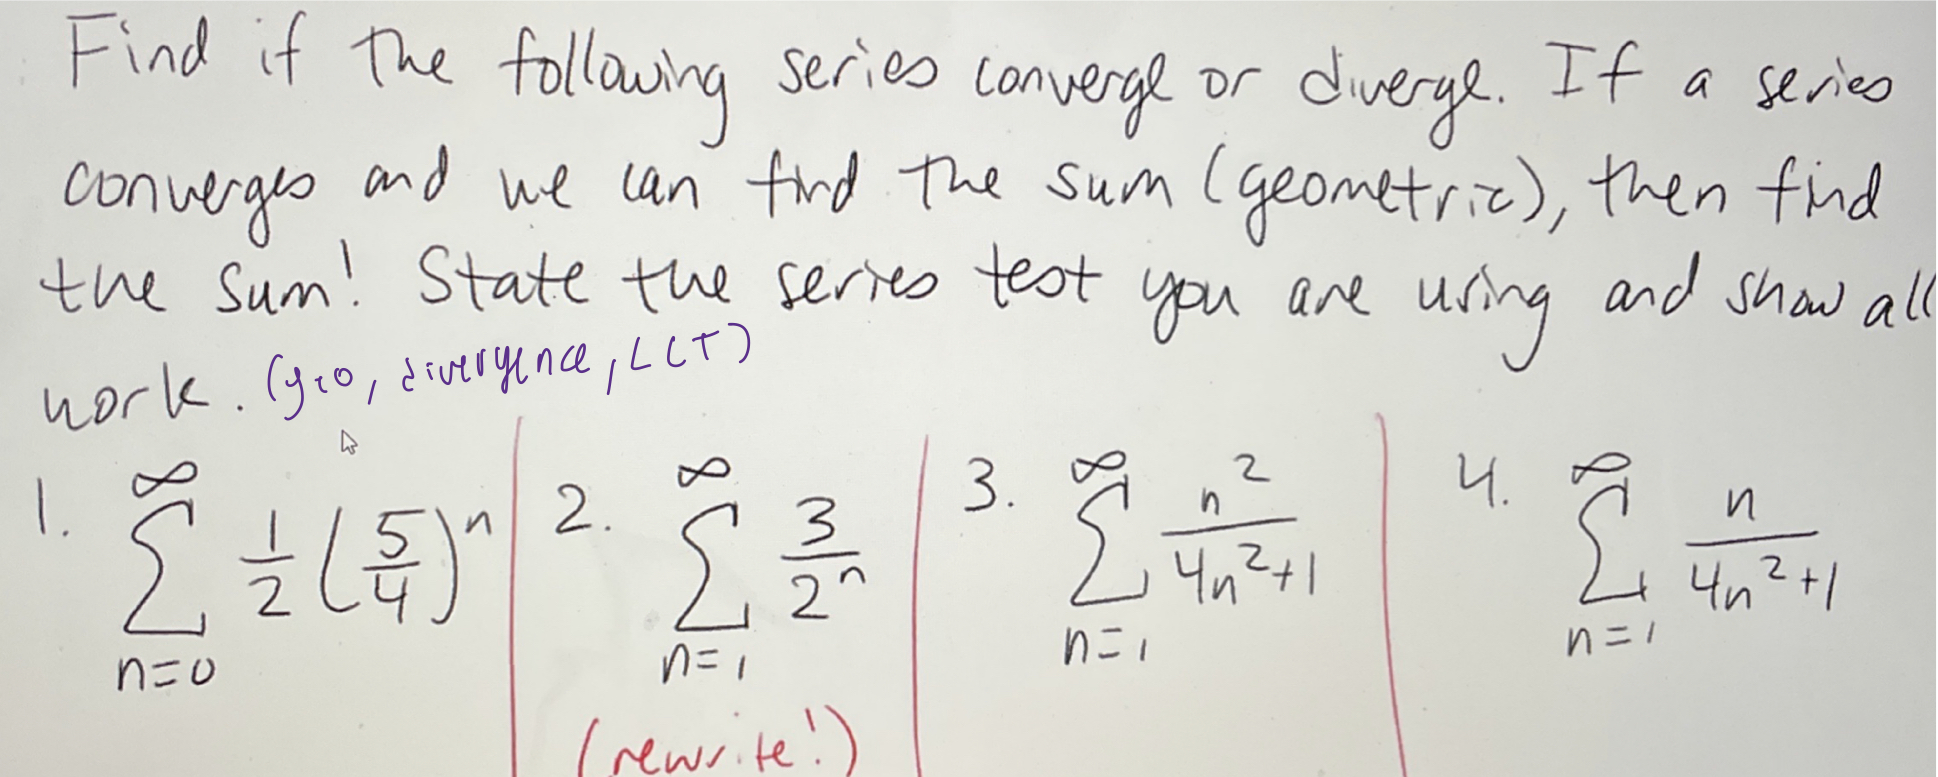 Find if the following series converge or diverge. If a series
converges and we can find the sum (geometric), then find
the sum! State the series test you are using and show all
work. (geo, divergence, LCT)
1. ∞ Σ n=0 1/2 (5/4)^n
2. ∞ Σ n=1 3/2^n
(rewrite!)
3. ∞ Σ n=1 n^2/(4n^2+1)
4. ∞ Σ n=1 n/(4n^2+1)